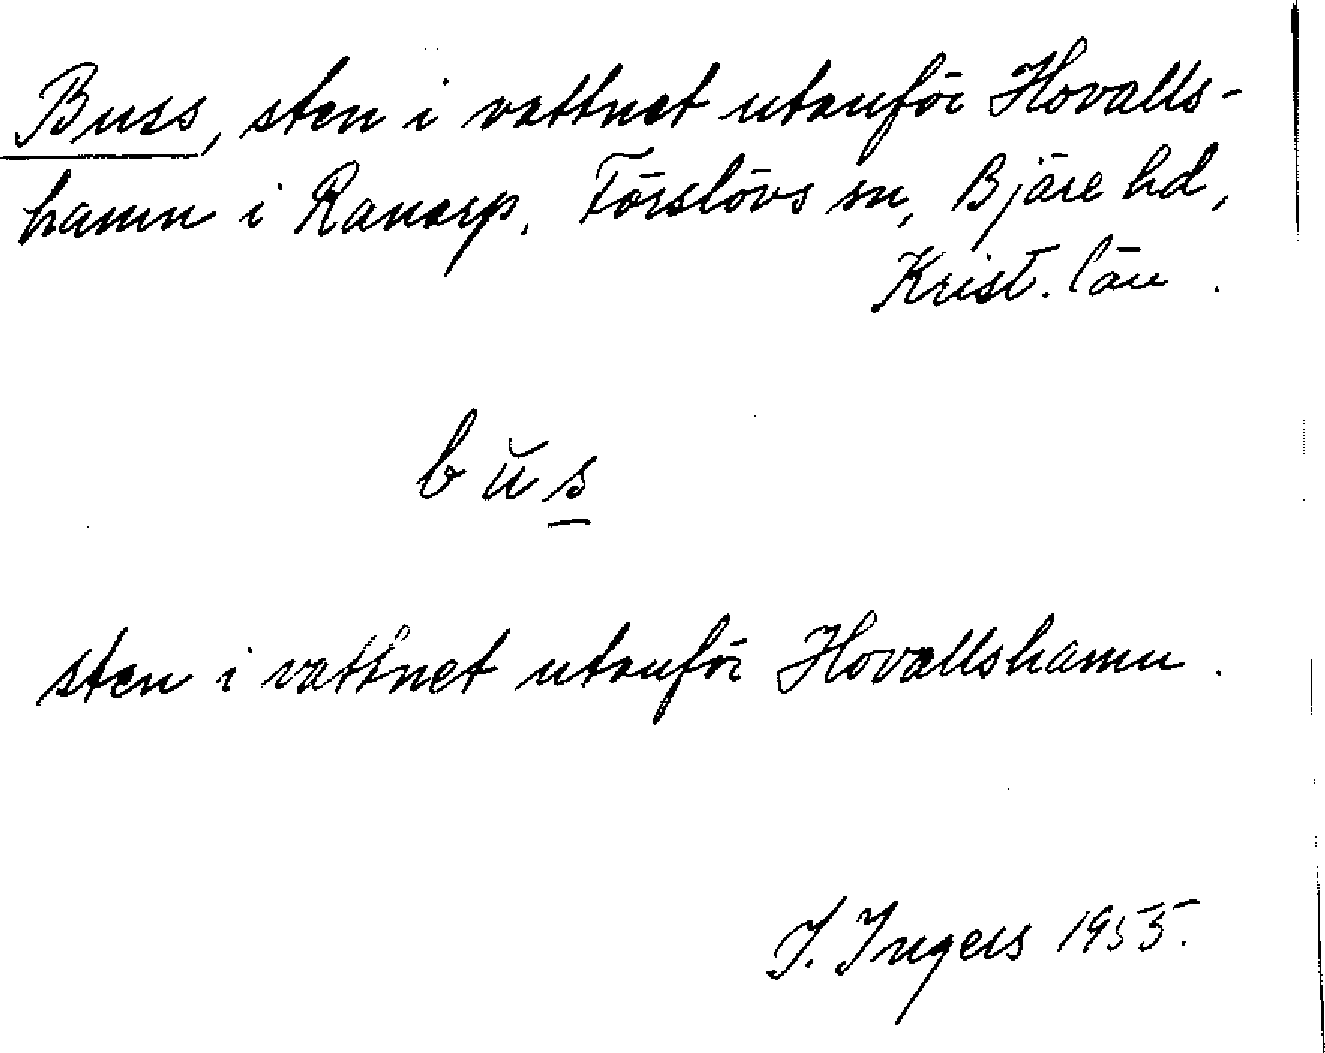 Buss, sten i vattnet utanför Hovalls-
hamn i Ranarp. Förslövs sn, Bjäre hd,
Krist. län.
bŭs
sten i vattnet utanför Hovallshamn.
I. Ingers 1955.